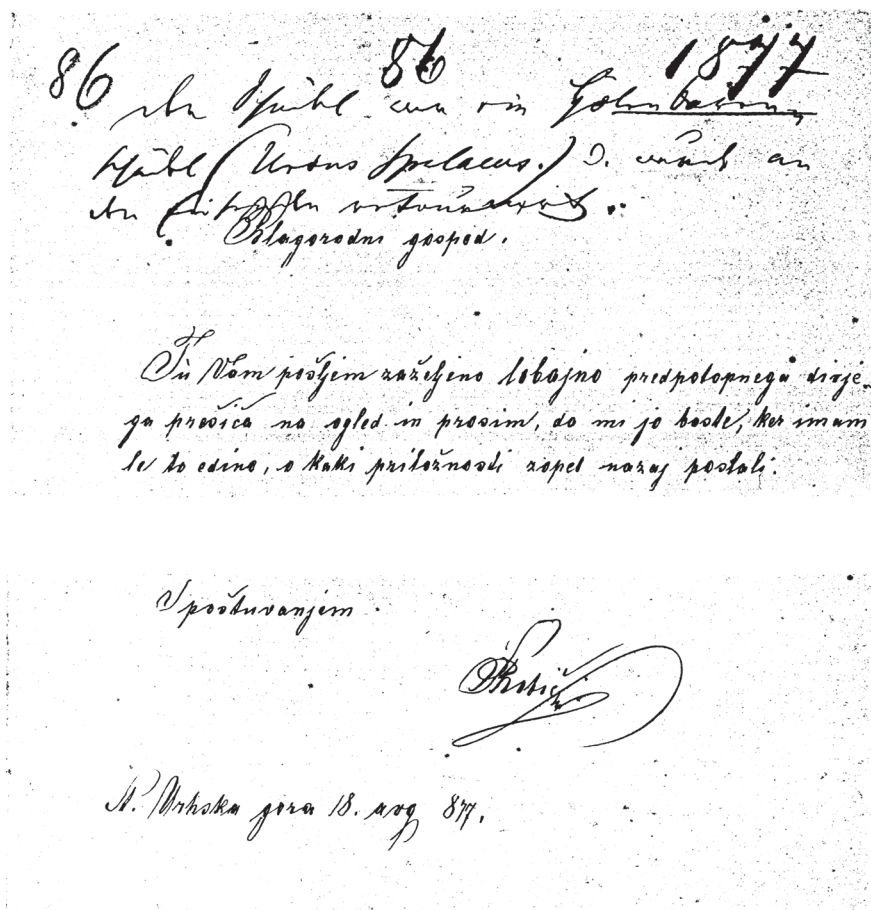 86 86 1877
Der Schädel war ein Höhlenbären
Schädl (Ursus Spelaeus.) u. wurde an
den retournirt.
Blagorodni gospod.
Tù Vam pošljem zaželjeno lobajno predpotopnega divje-
ga prešiča na ogled in prosim, da mi jo boste, ker imam
le to edino, o kaki priložnosti zopet nazaj poslali.
S poštuvanjem
Škobić
Vrhska gora 18. avg 877.